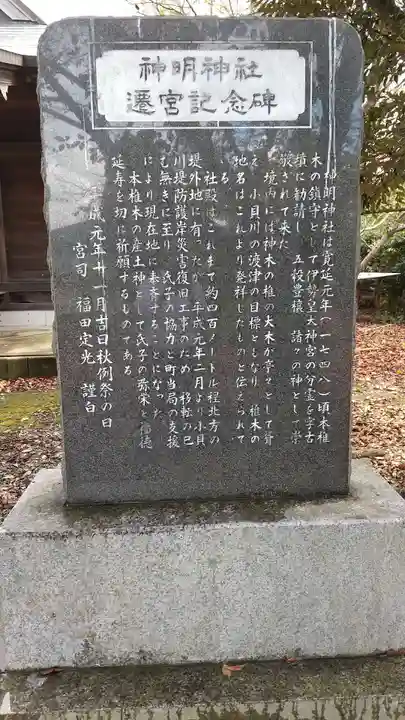 神明神社
遷宮記念碑
神明神社は寛延元年(一七四八)頃本椎
木の鎮守として伊勢皇大神宮の分霊を字古
墳に勧請し 五穀豊穣 諸々の神として崇
敬されて来た
境内には神木の椎の大木が亭々として聳
え 小貝川の渡津の目標ともなり 椎木の
地名はこれより発祥したものと伝えられて
いる
社殿はこれまで約四百メートル程北方の
堤外地に有ったが 平成元年二月より小貝
川堤防護岸災害復旧工事のため 移転の已
む無きに至り 氏子の協力と町当局の支援
により現在地に奉斉することになった
本椎木の産土神として氏子の弥栄と福徳
延寿を切に祈願するものである
平成元年十一月吉日秋例祭の日
宮司 福田定光 謹白